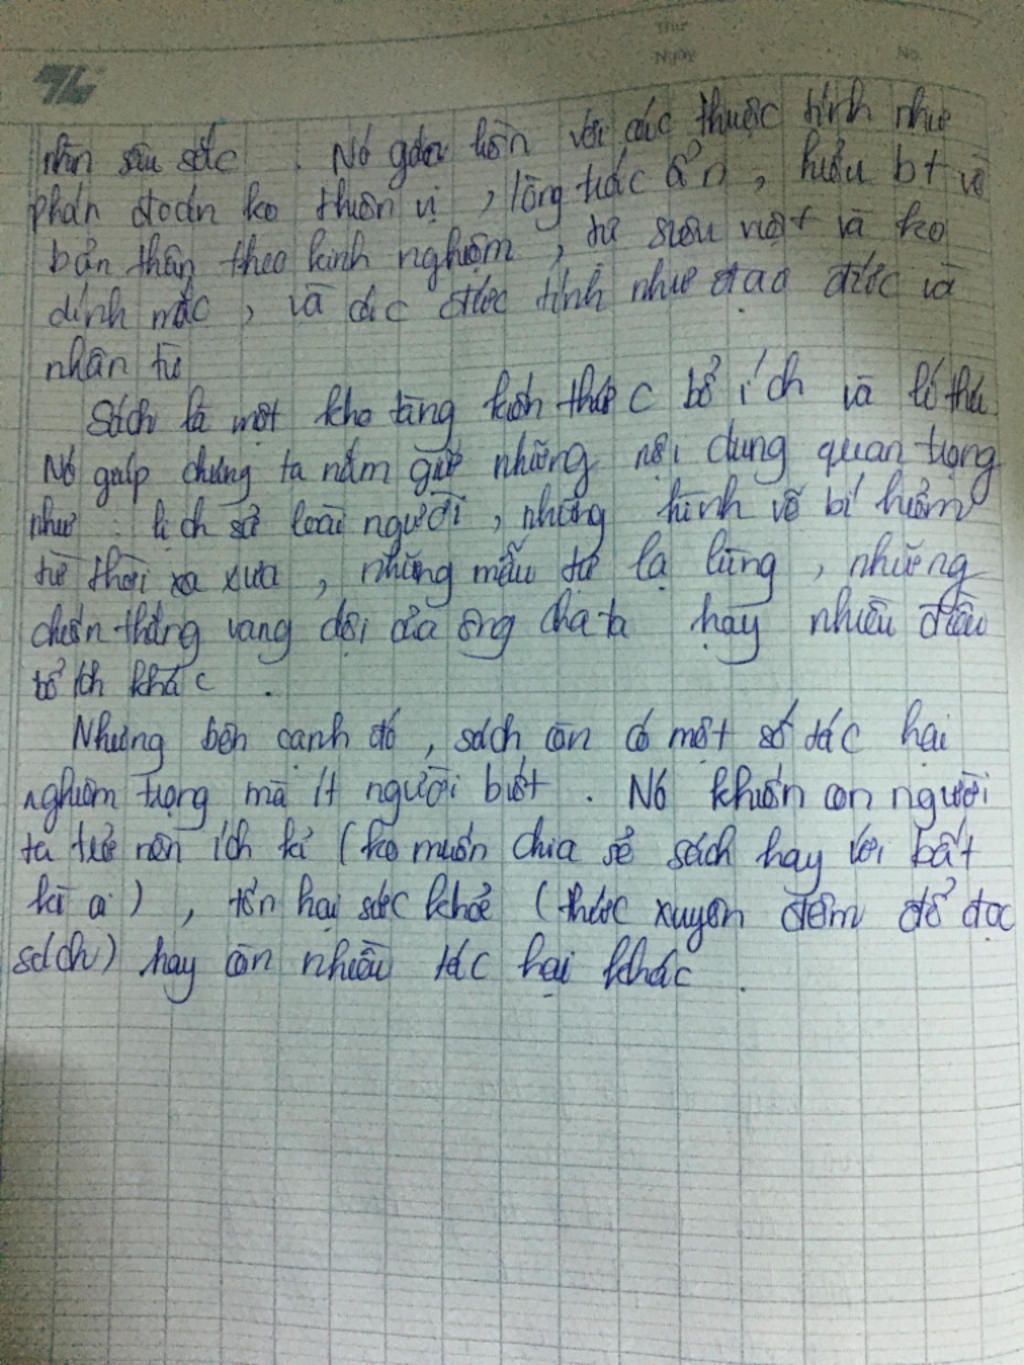 Thứ
Ngày
No.
nhìn sâu sắc . Nó gắn liền với các thuộc tính như
phán đoán ko thiên vị , lòng trắc ẩn , hiểu bt về
bản thân theo kinh nghiệm , tự siêu việt và ko
dính mắc , và các đức tính như đạo đức và
nhân từ
Sách là một kho tàng kiến thức bổ ích và lí thú.
Nó giúp chúng ta nắm giữ những nội dung quan trọng
như : lịch sử loài người , những hình vẽ bí hiểm
từ thời xa xưa , những mẫu tự lạ lùng , những
chiến thắng vang dội của ông cha ta hay nhiều điều
bổ ích khác .
Nhưng bên cạnh đó , sách còn có một số tác hại
nghiêm trọng mà ít người biết . Nó khiến con người
ta trở nên ích kỉ ( ko muốn chia sẻ sách hay với bất
kì ai ) , tổn hại sức khoẻ ( thức xuyên đêm để đọc
sách) hay còn nhiều tác hại khác .